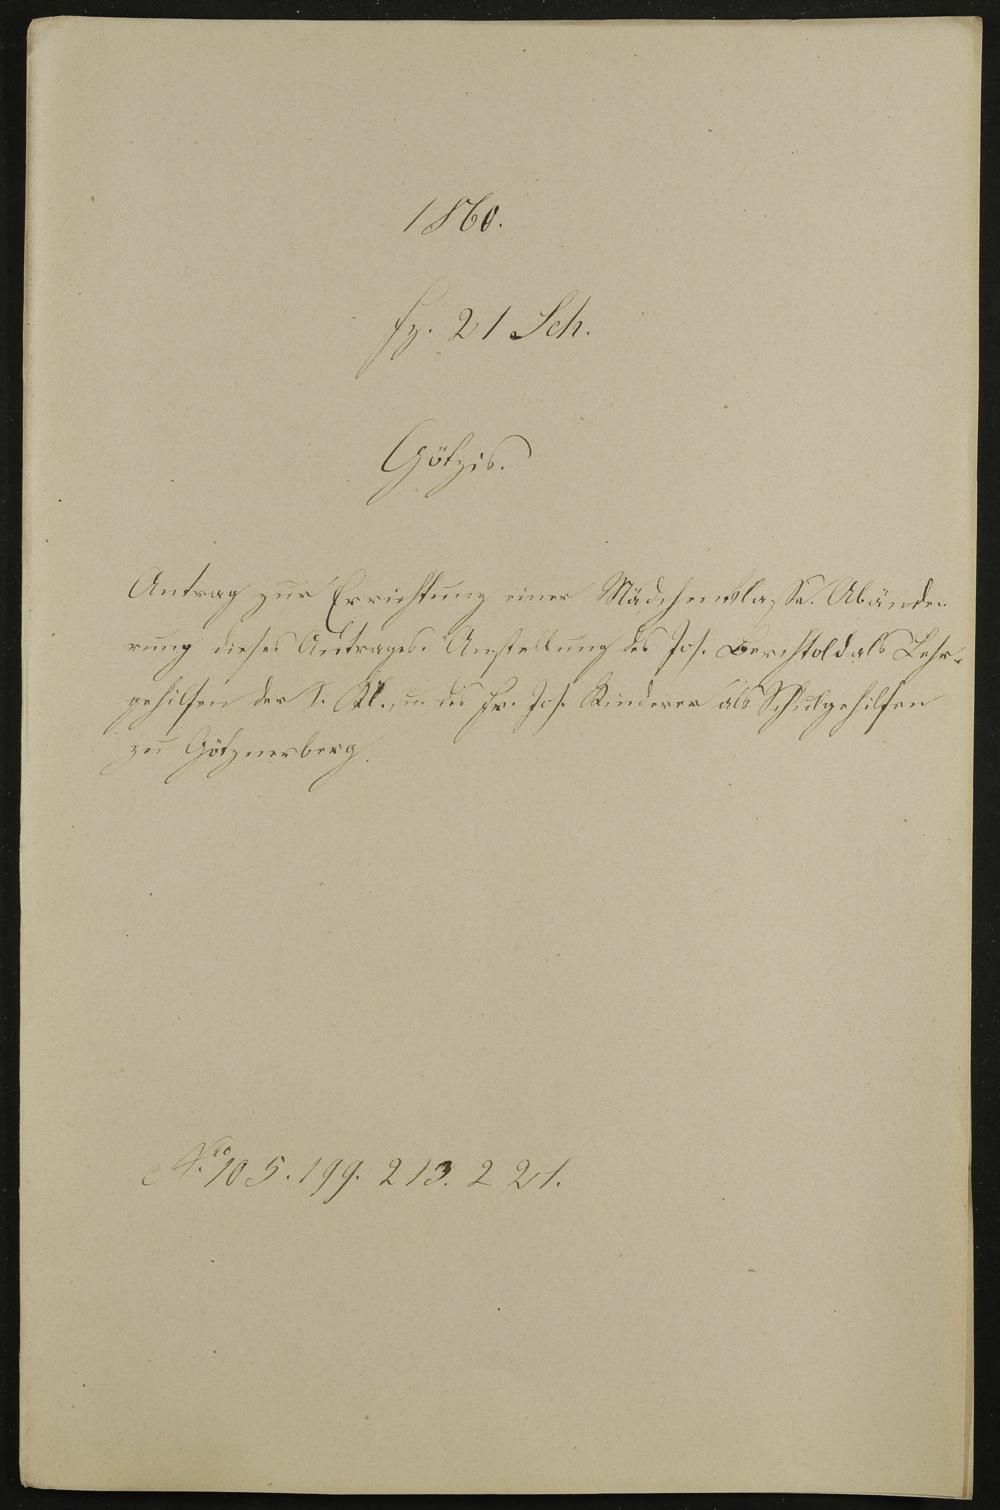 1860.
Fz. 21 Sch.
Götzis.
Antrag zur Errichtung einer Mädchenklasse. Abände-
rung dieses Antrages. Anstellung des Jos. Berchtold als Lehr-
gehilfen der I. Kl., u. des Fr. Jos. Kinderer als Schulgehilfen
zu Götznerberg.
No. 105. 199. 213. 221.